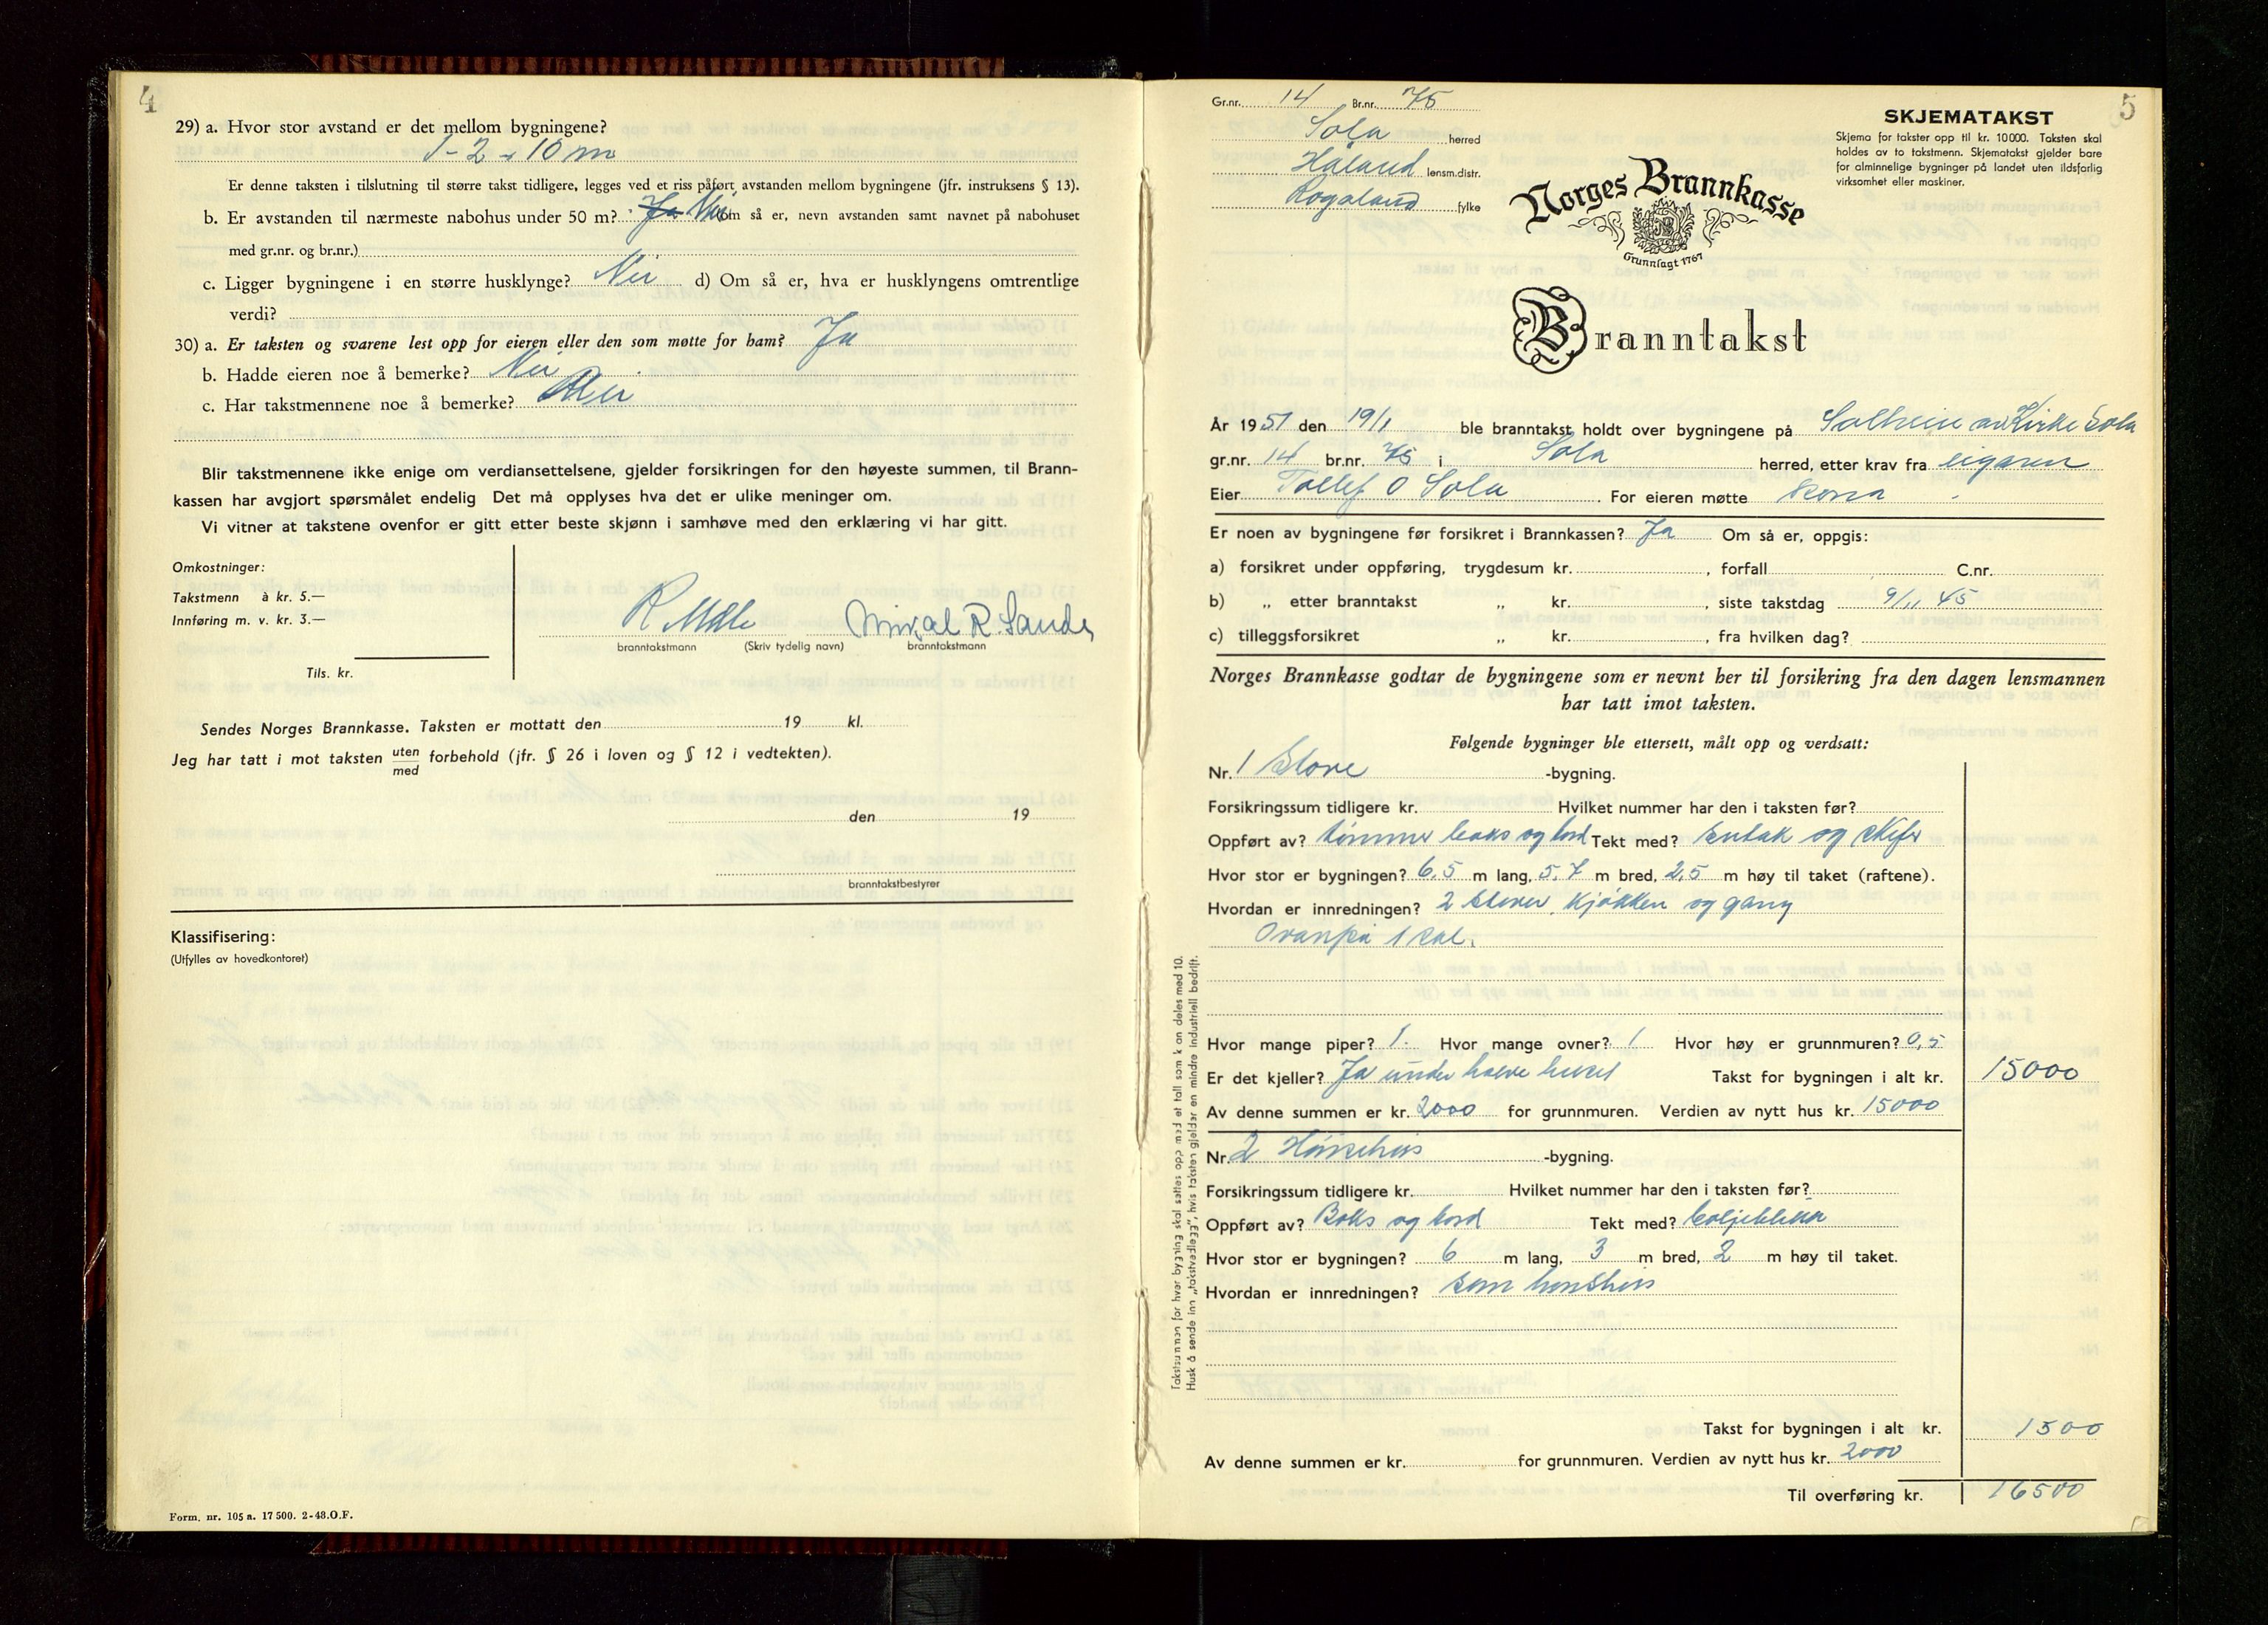 4
29) a. Hvor stor avstand er det mellom bygningene?
1-2 = 10 m
Er denne taksten i tilslutning til større takst tidligere, legges ved et riss påført avstanden mellom bygningene (jfr. instruksens § 13).
b. Er avstanden til nærmeste nabohus under 50 m? Ja Nei om så er, nevn avstanden samt navnet på nabohuset
med gr.nr. og br.nr.)
c. Ligger bygningene i en større husklynge? Nei d) Om så er, hva er husklyngens omtrentlige
verdi?
30) a. Er taksten og svarene lest opp for eieren eller den som møtte for ham? Ja
b. Hadde eieren noe å bemerke? Nei
c. Har takstmennene noe å bemerke? Nei
Blir takstmennene ikke enige om verdiansettelsene, gjelder forsikringen for den høyeste summen, til Brann-
kassen har avgjort spørsmålet endelig Det må opplyses hva det er ulike meninger om.
Vi vitner at takstene ovenfor er gitt etter beste skjønn i samhøve med den erklæring vi har gitt.
Omkostninger:
Takstmenn à kr. 5.—
Innføring m. v. kr. 3.—
Tils. kr.
R. Sande
branntakstmann (Skriv tydelig navn) branntakstmann
Sendes Norges Brannkasse. Taksten er mottatt den 19 kl.
Jeg har tatt i mot taksten uten
med forbehold (jfr. § 26 i loven og § 12 i vedtekten).
den 19
branntakstbestyrer
Klassifisering:
(Utfylles av hovedkontoret)
Form. nr. 105 a. 17 500. 2-48. O.F.
5
Gr.nr. 14 Br.nr. 75
Sola herred
Håland lensm.distr.
Rogaland fylke
SKJEMATAKST
Skjema for takster opp til kr. 10000. Taksten skal
holdes av to takstmenn. Skjematakst gjelder bare
for alminnelige bygninger på landet uten ildsfarlig
virksomhet eller maskiner.
Norges Brannkasse
Grunnlagt 1767
Branntakst
År 1951 den 19/1 ble branntakst holdt over bygningene på Solheim av Kirke Sola
gr.nr. 14 br.nr. 75 i Sola herred, etter krav fra eigaren
Eier Tollef O Sola. For eieren møtte kona
Er noen av bygningene før forsikret i Brannkassen? Ja Om så er, oppgis:
a) forsikret under oppføring, trygdesum kr. , forfall C.nr.
b) „ etter branntakst „ kr. , siste takstdag 9/11 45
c) tilleggsforsikret „ kr. , fra hvilken dag?
Norges Brannkasse godtar de bygningene som er nevnt her til forsikring fra den dagen lensmannen
har tatt imot taksten.
Følgende bygninger ble ettersett, målt opp og verdsatt:
Nr. 1 Stove -bygning.
Forsikringssum tidligere kr. Hvilket nummer har den i taksten før?
Oppført av? tømmer boks og bord Tekt med? og skifer
Hvor stor er bygningen? 6,5 m lang, 5,7 m bred, 2,5 m høy til taket (raftene).
Hvordan er innredningen? 2 stover, kjøkken og gang
Ovanpå 1 sal.
Hvor mange piper? 1. Hvor mange ovner? 1 Hvor høy er grunnmuren? 0,5
Er det kjeller? Ja under halve huset Takst for bygningen i alt kr. 15000
Av denne summen er kr. 2000 for grunnmuren. Verdien av nytt hus kr. 15000
Nr. 2 Hønsehus -bygning.
Forsikringssum tidligere kr. Hvilket nummer har den i taksten før?
Oppført av? Boks og bord Tekt med?
Hvor stor er bygningen? 6 m lang, 3 m bred, 2 m høy til taket.
Hvordan er innredningen? som hønshus
Takst for bygningen i alt kr. 1500
Av denne summen er kr. for grunnmuren. Verdien av nytt hus kr. 2000
Til overføring kr. 16500
Takstsummen for hver bygning skal settes opp med et tall som kan deles med 10.
Husk å sende inn „takstvedlegg", hvis taksten gjelder en mindre industriell bedrift.